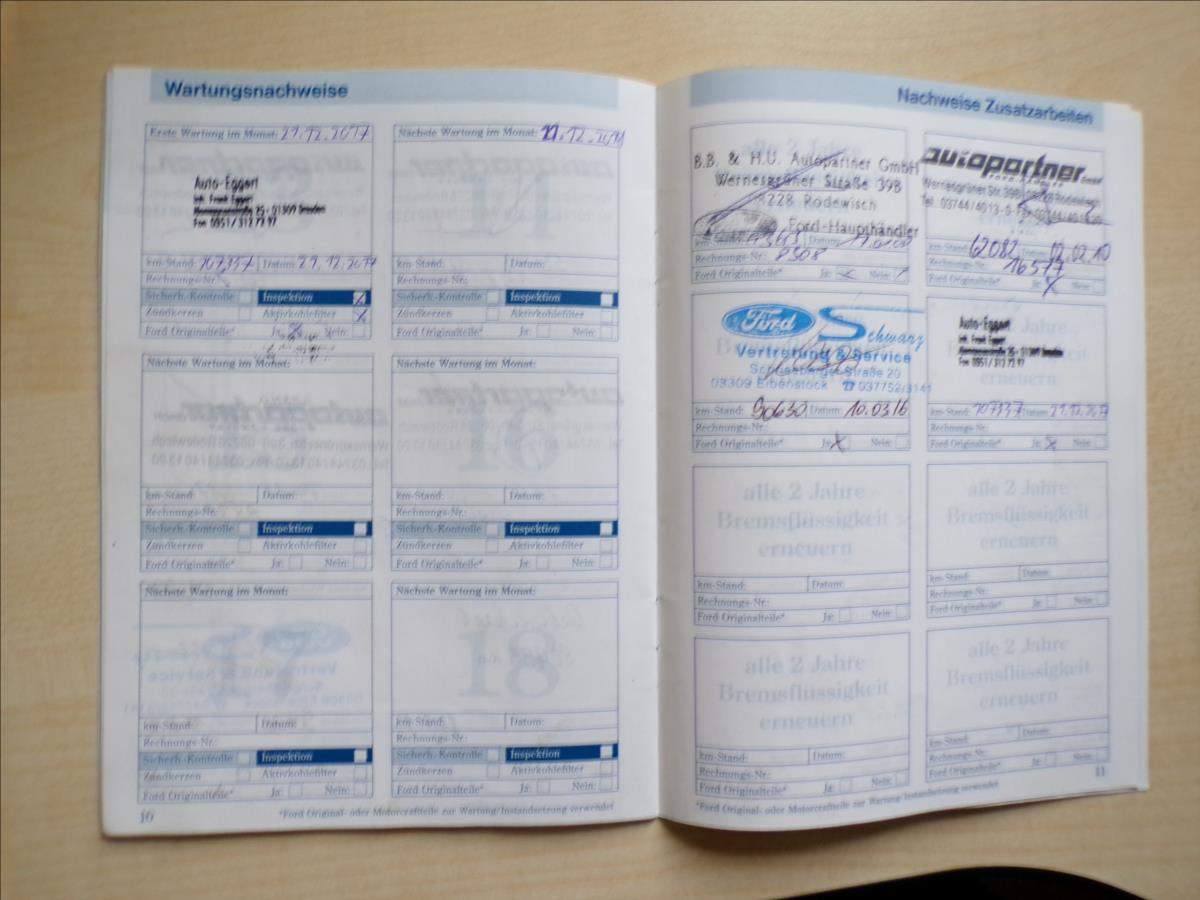 Wartungsnachweise
Erste Wartung im Monat: 21.12.2017
Auto-Eggert
Inh. Frank Eggert
01309 Dresden
Fon 0351/3127397
km-Stand: 107337 Datum: 21.12.2017
Rechnungs-Nr.:
Sicherh.-Kontrolle Inspektion
Zündkerzen Aktivkohlefilter
Ford Originalteile* Ja: Nein:
Nächste Wartung im Monat: 12.
km-Stand: Datum:
Rechnungs-Nr.:
Sicherh.-Kontrolle Inspektion
Zündkerzen Aktivkohlefilter
Ford Originalteile* Ja: Nein:
Nächste Wartung im Monat:
km-Stand: Datum:
Rechnungs-Nr.:
Sicherh.-Kontrolle Inspektion
Zündkerzen Aktivkohlefilter
Ford Originalteile* Ja: Nein:
Nächste Wartung im Monat:
16
km-Stand: Datum:
Rechnungs-Nr.:
Sicherh.-Kontrolle Inspektion
Zündkerzen Aktivkohlefilter
Ford Originalteile* Ja: Nein:
Nächste Wartung im Monat:
17
km-Stand: Datum:
Rechnungs-Nr.:
Sicherh.-Kontrolle Inspektion
Zündkerzen Aktivkohlefilter
Ford Originalteile* Ja: Nein:
Nächste Wartung im Monat:
18
km-Stand: Datum:
Rechnungs-Nr.:
Sicherh.-Kontrolle Inspektion
Zündkerzen Aktivkohlefilter
Ford Originalteile* Ja: Nein:
*Ford Original- oder Motorcraftteile zur Wartung/Instandsetzung verwendet
10
Nachweise Zusatzarbeiten
alle 2 Jahre
B.B. & H.U. Autopartner GmbH
Wernesgrüner Straße 39B
08228 Rodewisch
Ford-Haupthändler
km-Stand: Datum:
Rechnungs-Nr.: 8308
Ford Originalteile* Ja: Nein:
autopartner GmbH
Wernesgrüner Str. 39B · 08228 Rodewisch
Tel. 03744/4013-0 · Fax 03744/401320
km-Stand: 62082 Datum: 12.02.10
Rechnungs-Nr.: 16577
Ford Originalteile* Ja: Nein:
Ford Schwarz
Vertretung & Service
Schneeberger Straße 20
08309 Eibenstock ☎ 037752/3141
km-Stand: 90630 Datum: 10.03.16
Rechnungs-Nr.:
Ford Originalteile* Ja: Nein:
alle 2 Jahre
Bremsflüssigkeit
erneuern
Auto-Eggert
Inh. Frank Eggert
01309 Dresden
Fon 0351/3127397
km-Stand: 107337 Datum: 21.12.2017
Rechnungs-Nr.:
Ford Originalteile* Ja: Nein:
alle 2 Jahre
Bremsflüssigkeit
erneuern
km-Stand: Datum:
Rechnungs-Nr.:
Ford Originalteile* Ja: Nein:
alle 2 Jahre
Bremsflüssigkeit
erneuern
km-Stand: Datum:
Rechnungs-Nr.:
Ford Originalteile* Ja: Nein:
alle 2 Jahre
Bremsflüssigkeit
erneuern
km-Stand: Datum:
Rechnungs-Nr.:
Ford Originalteile* Ja: Nein:
alle 2 Jahre
Bremsflüssigkeit
erneuern
km-Stand: Datum:
Rechnungs-Nr.:
Ford Originalteile* Ja: Nein:
*Ford Original- oder Motorcraftteile zur Wartung/Instandsetzung verwendet
11